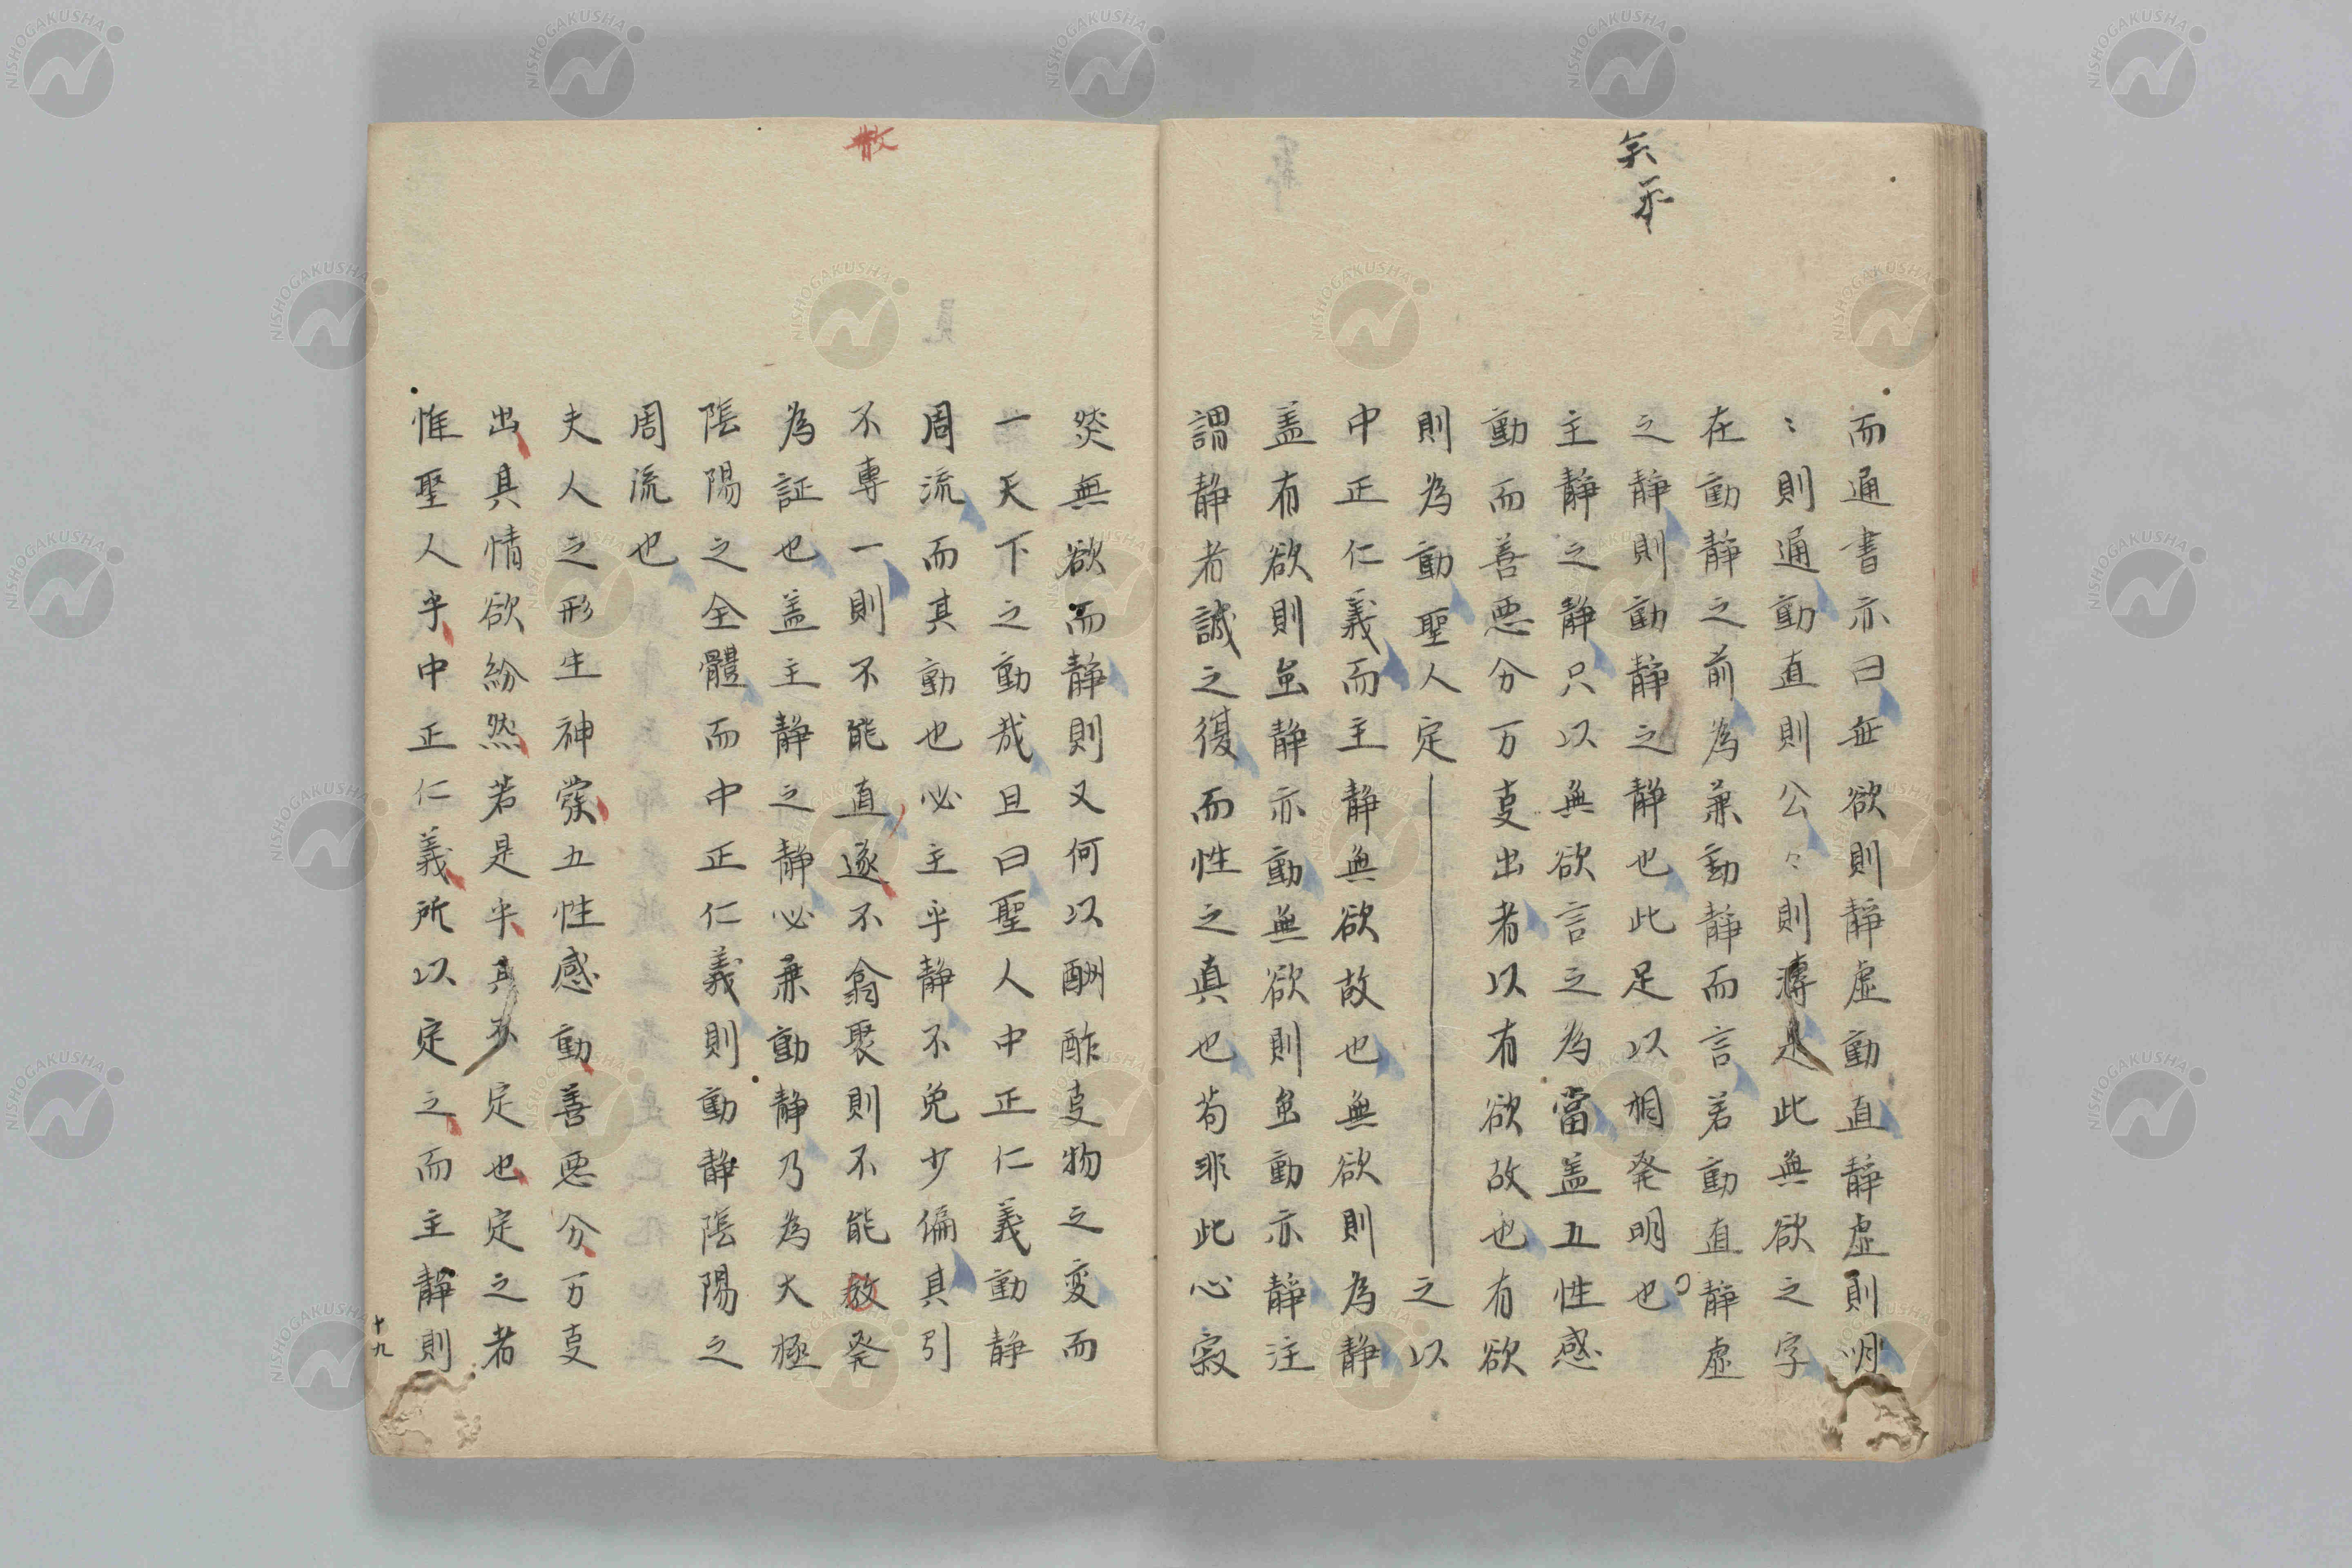 而通書亦曰無欲則靜虛動直靜虛則明
〻則通動直則公〻則溥是此無欲之字
在動静之前為兼動静而言若動直静虛
之静則動静之静也此足以相発明也
主静之静只以無欲言之為當盖五性感
動而善悪分万事出者以有欲故也有欲
則為動聖人定――之以
中正仁義而主静無欲故也無欲則為静
盖有欲則虽静亦動無欲則虽動亦静注
謂静者誠之復而性之真也苟非此心寂
然無欲而静則又何以酬酢事物之変而
一天下之動哉且曰聖人中正仁義動静
周流而其動也必主乎静不免少偏其引
不專一則不能直遂不翕聚則不能散発
為証也盖主静之静必兼動静乃為大極
陰陽之全體而中正仁義則動静陰陽之
周流也
夫人之形生神發五性感動善悪分万事
出其情欲紛然若是乎其不定也定之者
惟聖人乎中正仁義所以定之而主静則
散
十九
NISHOGAKUSHA